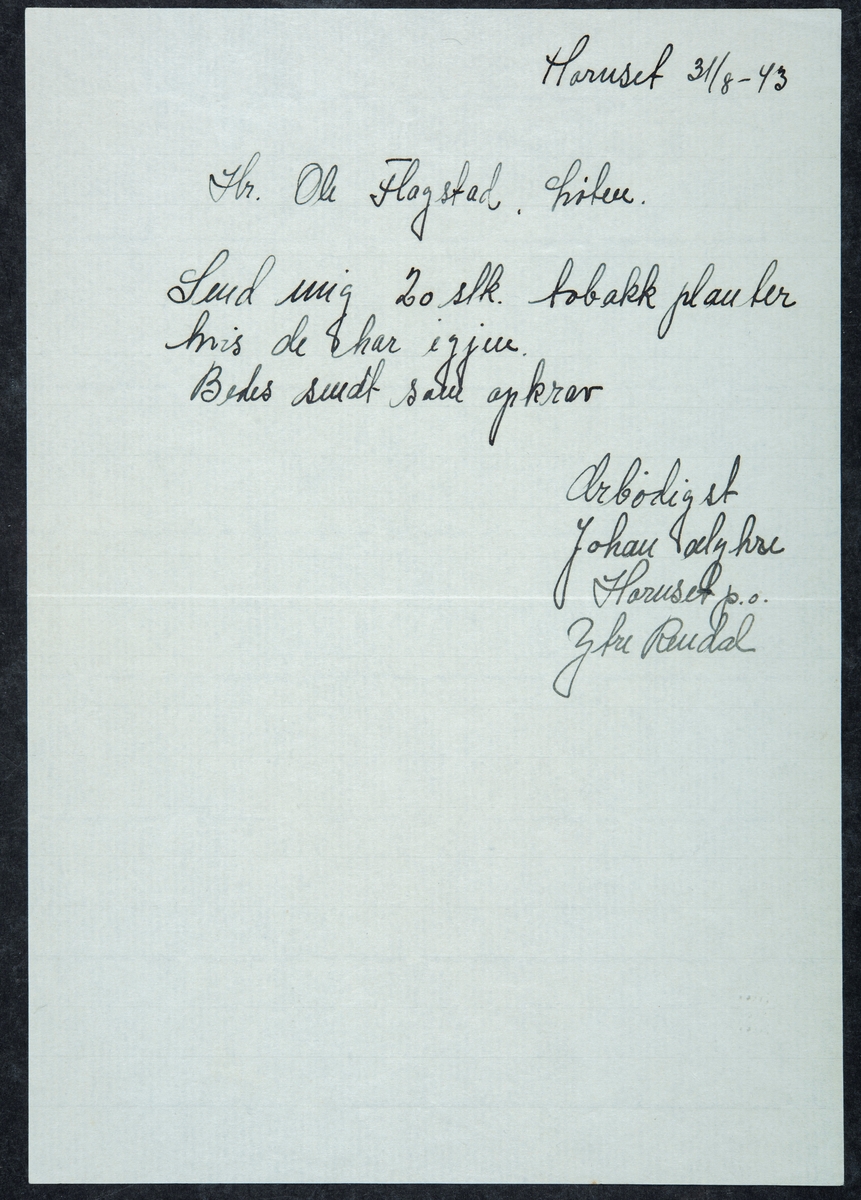 Hornset 31/8-43
Hr. Ole Flagstad, Løten.
Send mig 20 stk. tobakk planter
hvis de har igjen.
Bedes sendt som opkrav
Ærbødigst
Johan
Hornset p.o.
Ytre Rendal